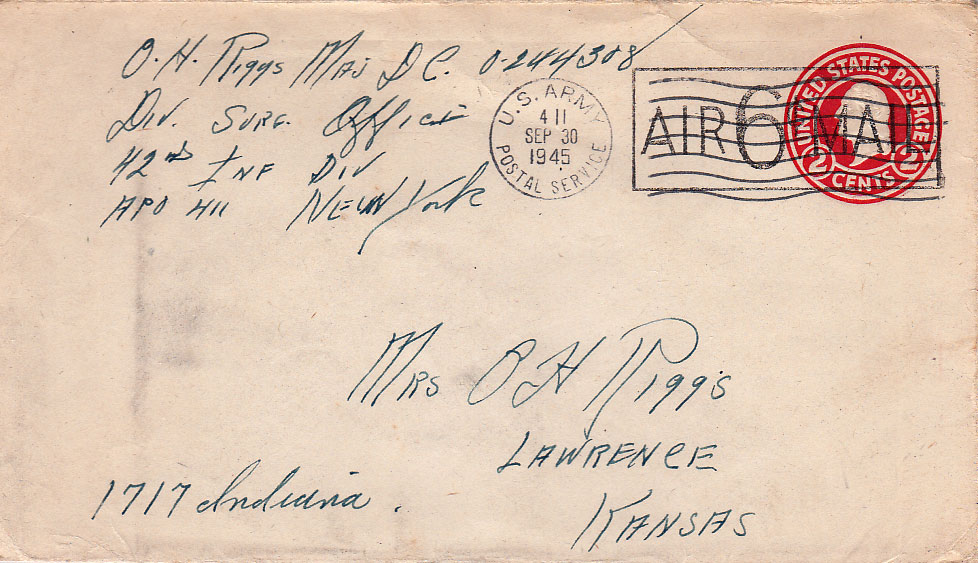 O. H. Riggs Maj D C. 0-244308
Div. Surg. Office
42nd Inf Div
APO 411 New York
U.S. ARMY
4 11
SEP 30
1945
POSTAL SERVICE
AIR 6¢ MAIL
UNITED STATES POSTAGE
2 CENTS 2
Mrs O H Riggs
LAWRENCE
KANSAS
1717 Indiana.